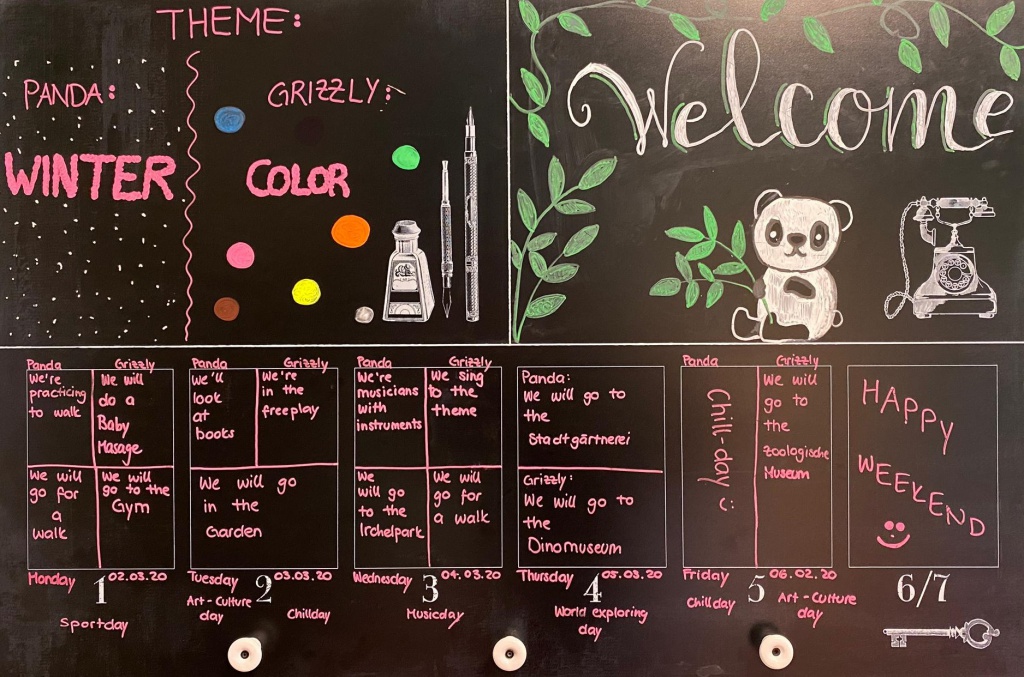 THEME:
PANDA:
WINTER
GRIZZLY:
COLOR
Welcome
Panda Grizzly
We're
practicing
to walk
We will
do a
Baby
Masage
We will
go for
a
walk
We will
go to the
Gym
Monday 1 02.03.20
Sportday
Panda Grizzly
We'll
look
at
books
We're
in the
freeplay
We will go
in the
Garden
Tuesday 2 03.03.20
Art-Culture
day
Chillday
Panda Grizzly
We're
musicians
with
instruments
We sing
to the
theme
We
will go
to the
Irchelpark
We will
go for
a walk
Wednesday 3 04.03.20
Musicday
Panda:
We will go to
the
Stadtgärtnerei
Grizzly:
We will go to
the
Dinomuseum
Thursday 4 05.03.20
World exploring
day
Panda Grizzly
Chill-day :)
We will
go to
the
zoologische
Museum
Friday 5 06.02.20
Chillday
Art-Culture
day
HAPPY
WEEKEND
6/7